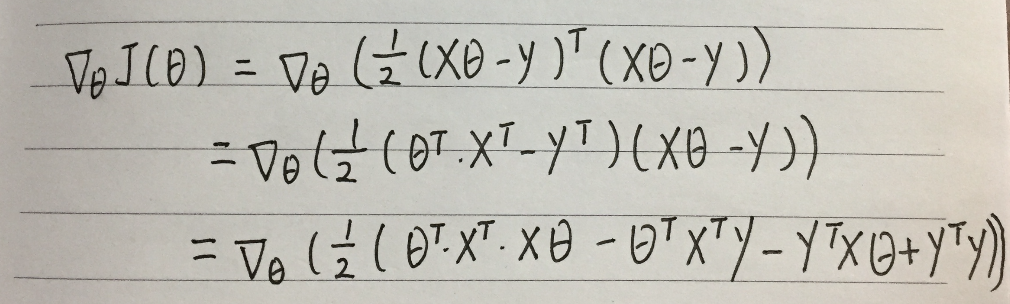 ∇θ J(θ) = ∇θ (½ (Xθ - y)ᵀ (Xθ - y))
= ∇θ (½ (θᵀ · Xᵀ - yᵀ) (Xθ - y))
= ∇θ (½ (θᵀ · Xᵀ · Xθ - θᵀXᵀy - yᵀXθ + yᵀy))